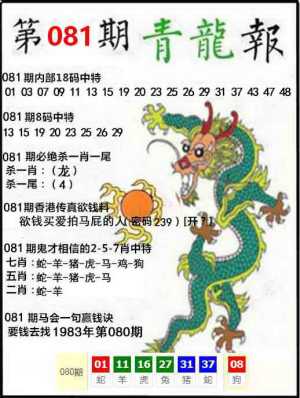 第081期青龍報
081期内部18码中特
01 03 07 09 11 13 15 19 20 23 25 26 29 31 43 47 48
081期8码中特
13 15 19 20 23 25 26 29
081期必绝杀一肖一尾
杀一肖：（龙）
杀一尾：（4）
081期香港传真欲钱料
欲钱买爱拍马屁的人(密码239）[开？]
081期鬼才相信的2-5-7肖中特
七肖：蛇-羊-猪-虎-马-鸡-狗
五肖：蛇-羊-猪-虎-马
二肖：蛇-羊
081期马会一句赢钱诀
要钱去找1983年第080期
080期 01 11 16 27 31 37 08
蛇 羊 虎 兔 猪 蛇 狗